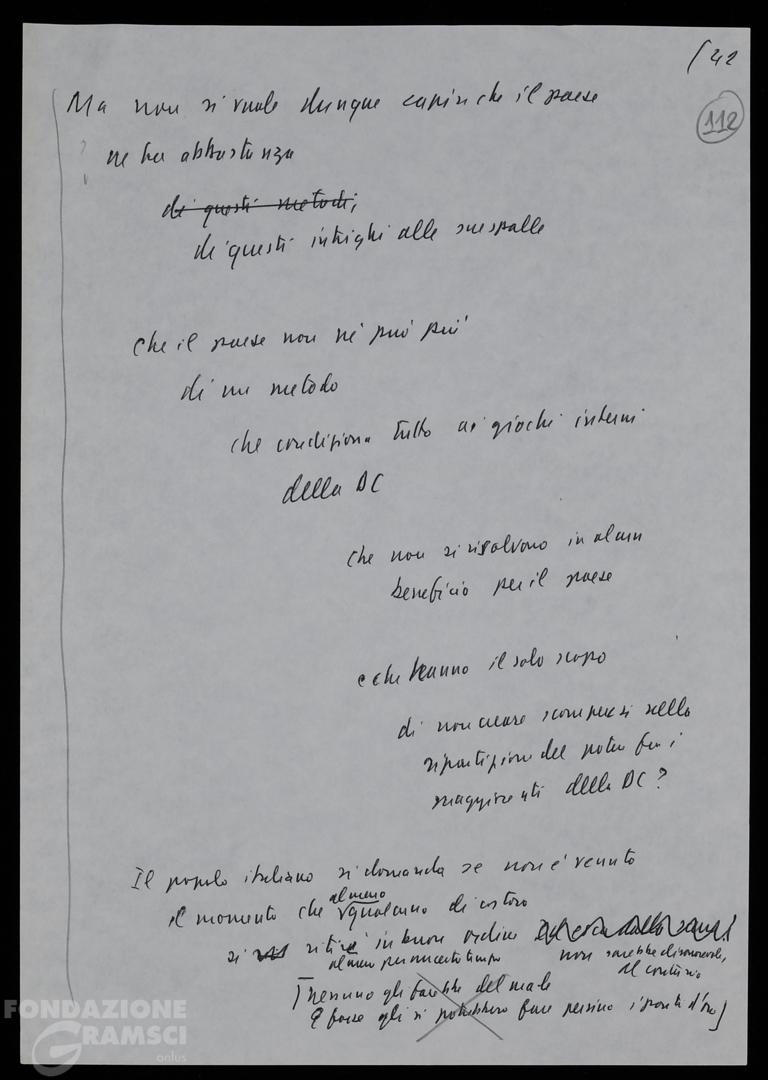 /42
112
Ma non si vuole dunque capire che il paese
ne ha abbastanza
di questi metodi,
di questi intrighi alle sue spalle
Che il paese non ne può più
di un metodo
che condiziona tutto ai giochi interni
della DC
che non si risolvono in alcun
beneficio per il paese
e che hanno il solo scopo
di non creare scompensi nella
ripartizione del potere fra i
maggiorenti della DC?
Il popolo italiano si domanda se non è venuto
almeno
il momento che qualcuno di costoro
si ritiri in buon ordine
almeno per un certo tempo
non sarebbe disonorevole,
al contrario
[nessuno gli farebbe del male
e forse gli si potrebbero fare persino i ponti d'oro]
FONDAZIONE
GRAMSCI
onlus